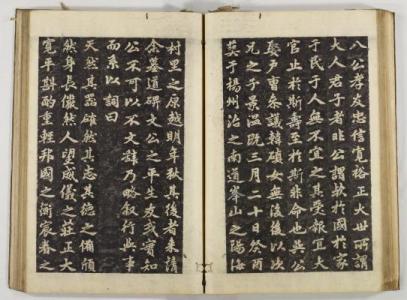 八公孝友忠信寬裕正大世所謂
大人君子者非公謂歟於國於家
于民于人無不宜之其受報宜大
官止於斯壽至於斯非命也與公
娶戶曹叅議韓碩女無後後以次
兄之子景溫既三月二十日癸酉
葬于楊州治之南道峯山之陽海
村里之原越明年秋其後者來請
余墓道碑文公之平生友我實如
公不可以不文肆乃略叙行與事
而系以詞曰
天然其器確然其志其德之備頎
然身長儼然人望威儀之莊正大
寬平斟酌重輕邦國之衡宸眷之